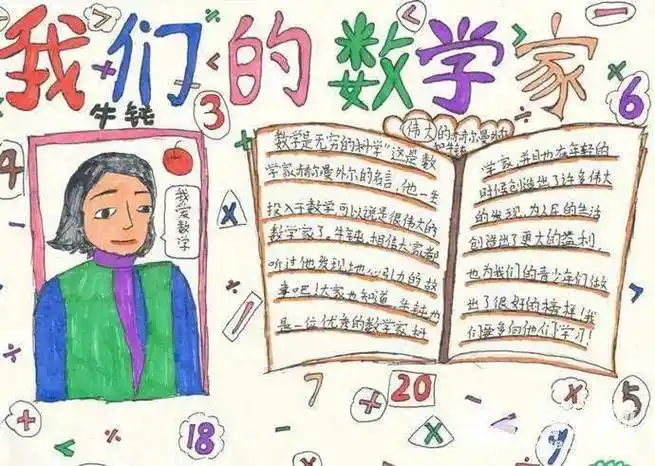 我们的数学家
牛钝
我爱数学
伟大的赫尔曼外尔
和牛钝
数学是无穷的科学”这是数
学家赫尔曼外尔的名言，他一生
投入于数学可以说是很伟大的
数学家了。牛钝，相信大家都
听过他发现地心引力的故
事吧！大家也知道，牛钝也
是一位优秀的数学家，科
学家，并且他在年轻的
时候创造出了许多伟大
的发现，为人民的生活
创造出了更大的益利，
也为我们的青少年们做
出了很好的榜样！我
们要多向他们学习！
3
6
4
7
20
5
18